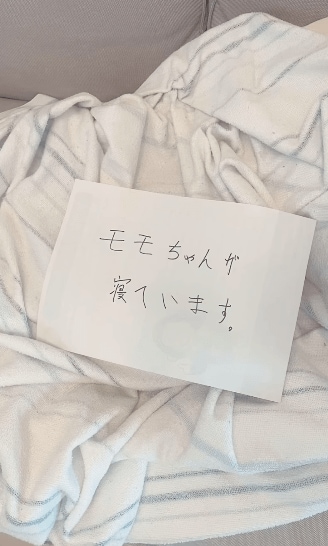 モモちゃんが
寝ています。